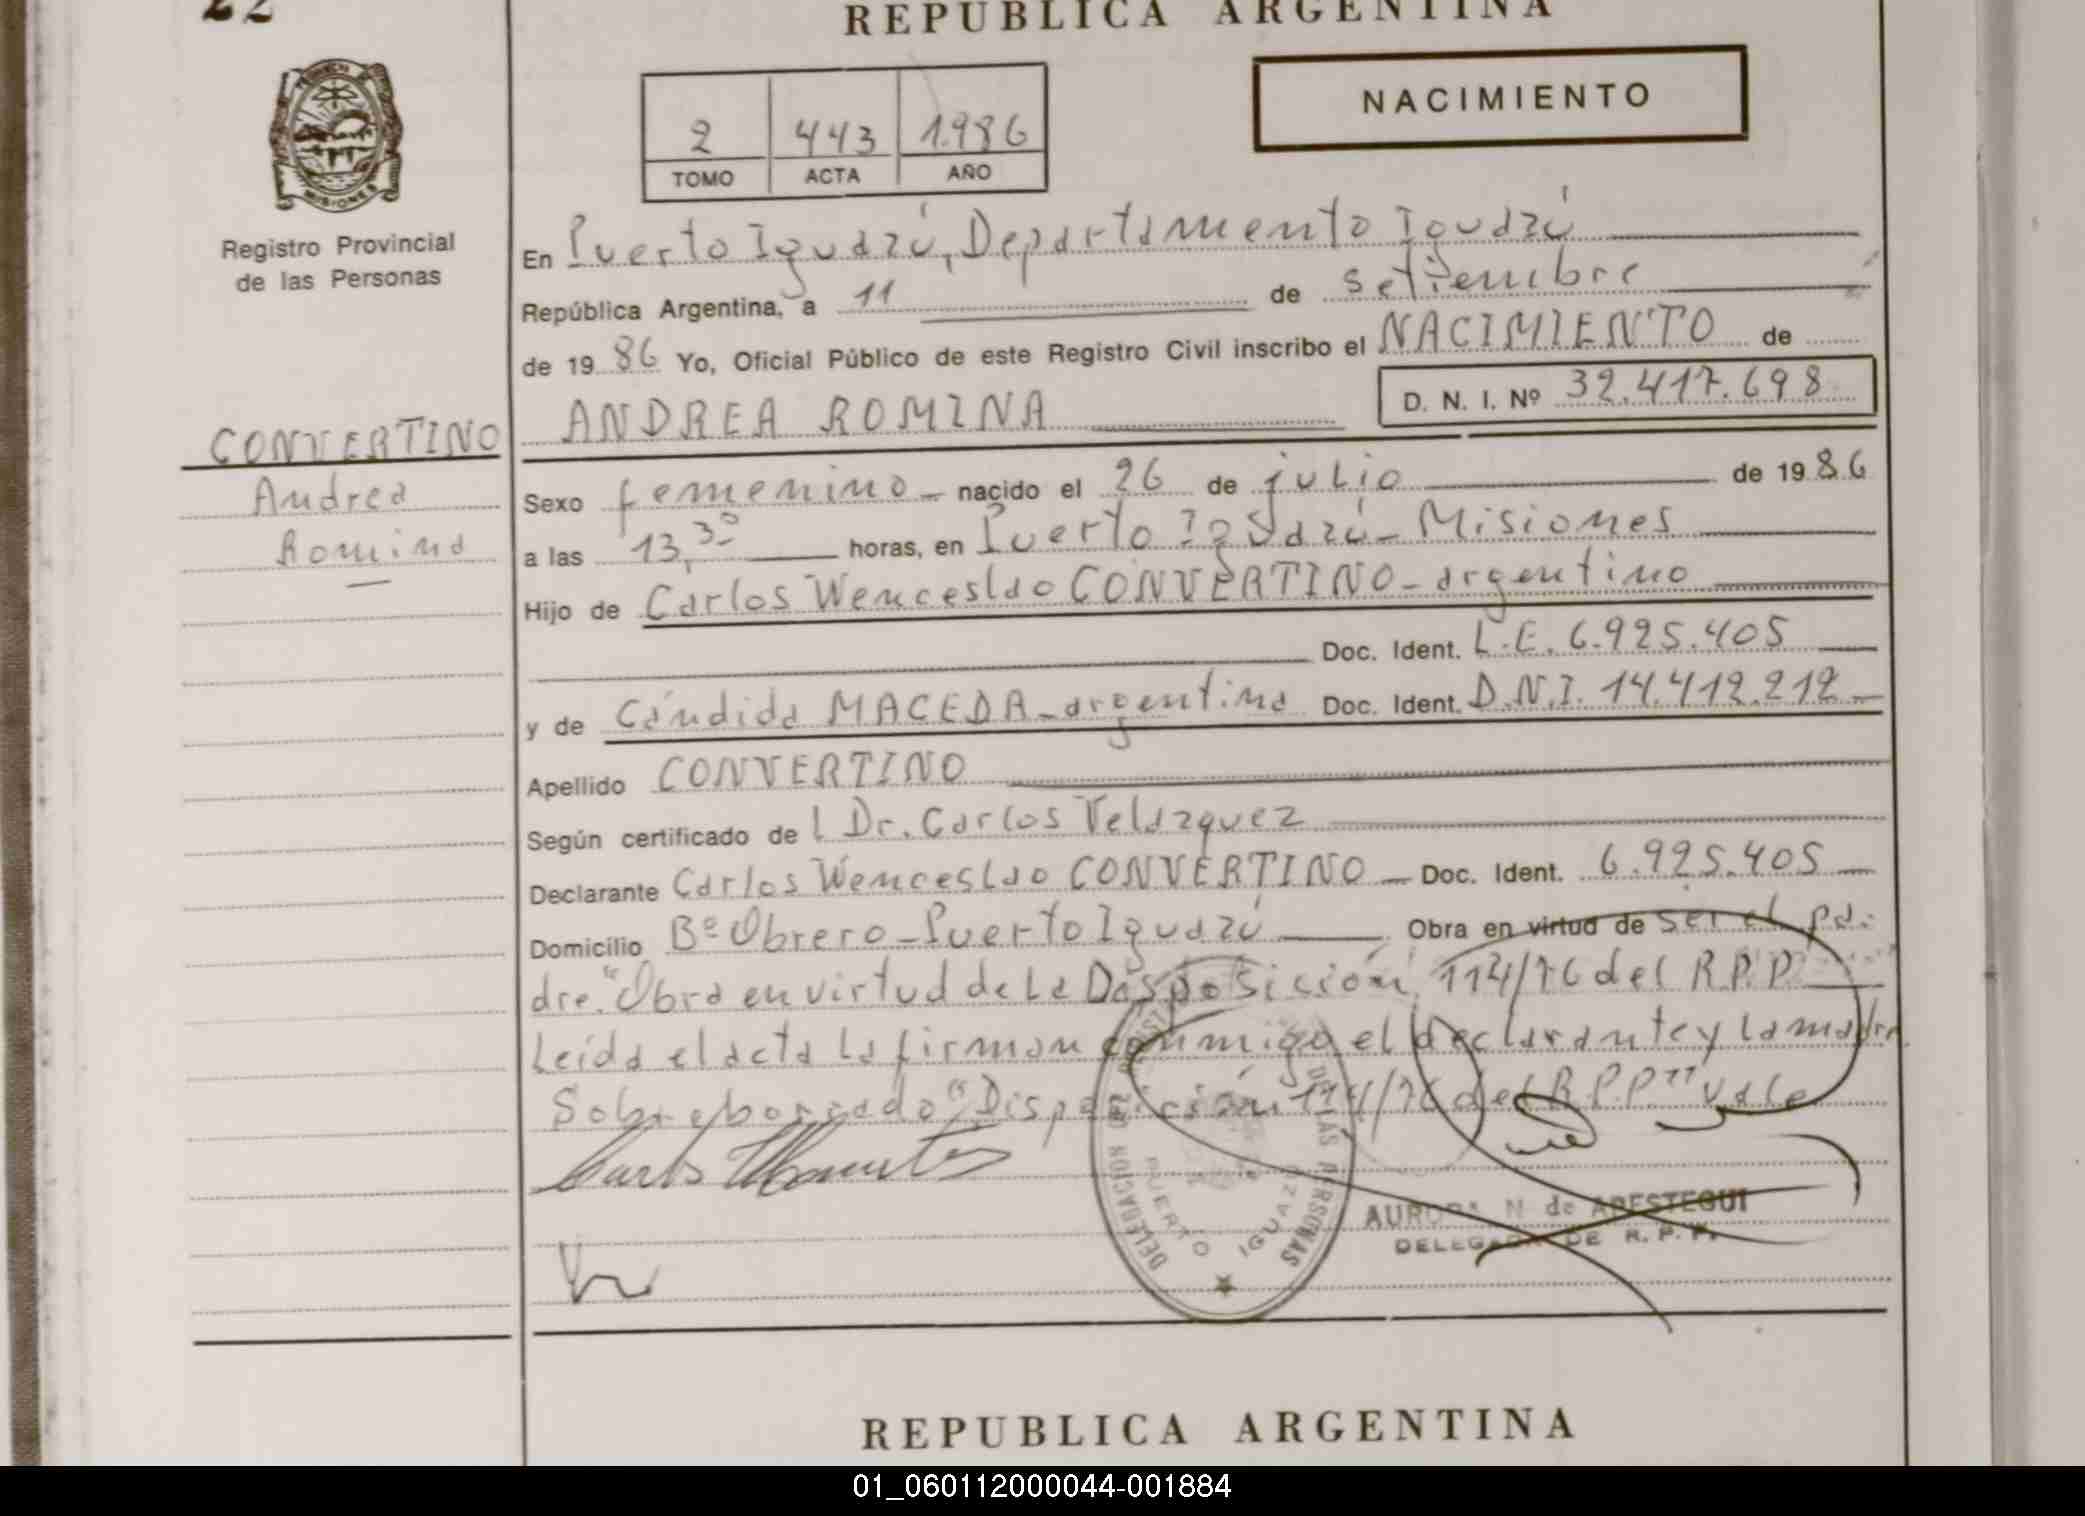 22
REPUBLICA ARGENTINA
NACIMIENTO
2 443 1.986
TOMO ACTA AÑO
MISIONES
Registro Provincial
de las Personas
En Puerto Iguazú, Departamento Iguazú
República Argentina, a 11 de setiembre
de 1986 Yo, Oficial Público de este Registro Civil inscribo el NACIMIENTO de
ANDREA ROMINA D. N. I. Nº 32.417.698
CONVERTINO
Andrea
Romina
Sexo femenino nacido el 26 de julio de 1986
a las 13,30 horas, en Puerto Iguazú - Misiones
Hijo de Carlos Wenceslao CONVERTINO - argentino
Doc. Ident. L.E. 6.925.405
y de Cándida MACEDA - argentina Doc. Ident. D.N.I. 14.412.212
Apellido CONVERTINO
Según certificado del Dr. Carlos Velazquez
Declarante Carlos Wenceslao CONVERTINO Doc. Ident. 6.925.405
Domicilio Bº Obrero - Puerto Iguazú Obra en virtud de ser el pa-
dre. "Obra en virtud de la Disposición 114/76 del R.P.P.
Leída el acta la firman conmigo el declarante y la madre
Sobreborrado "Disposición 114/76 del R.P.P" vale
DELEGACION
DE LAS PERSONAS
PUERTO IGUAZU
AURORA N de APESTEGUI
DELEGADA DE R. P. P.
REPUBLICA ARGENTINA
01_060112000044-001884